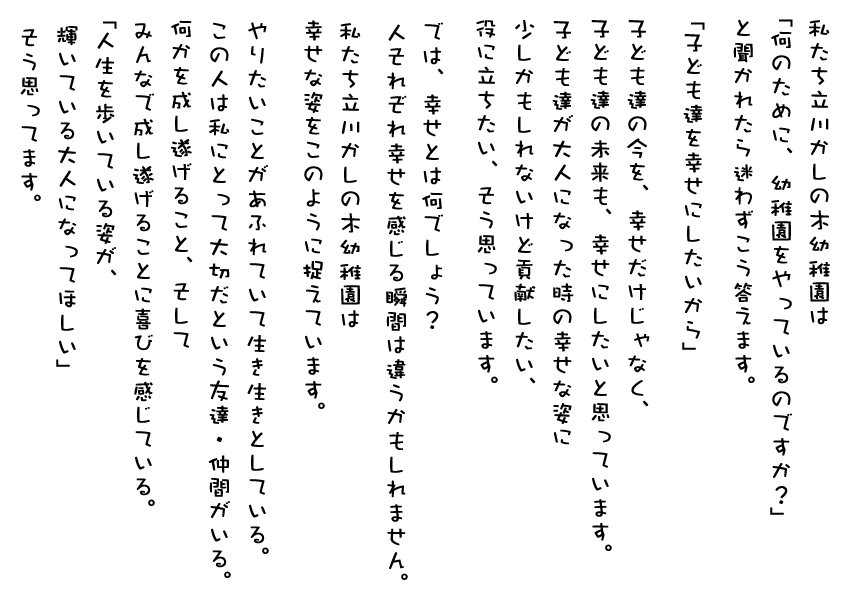 私たち立川かしの木幼稚園は
「何のために、幼稚園をやっているのですか？」
と聞かれたら迷わずこう答えます。
「子ども達を幸せにしたいから」
子ども達の今を、幸せだけじゃなく、
子ども達の未来も、幸せにしたいと思っています。
子ども達が大人になった時の幸せな姿に
少しかもしれないけど貢献したい、
役に立ちたい、そう思っています。
では、幸せとは何でしょう？
人それぞれ幸せを感じる瞬間は違うかもしれません。
私たち立川かしの木幼稚園は
幸せな姿をこのように捉えています。
やりたいことがあふれていて生き生きとしている。
この人は私にとって大切だという友達・仲間がいる。
何かを成し遂げること、そして
みんなで成し遂げることに喜びを感じている。
「人生を歩いている姿が、
輝いている大人になってほしい」
そう思ってます。